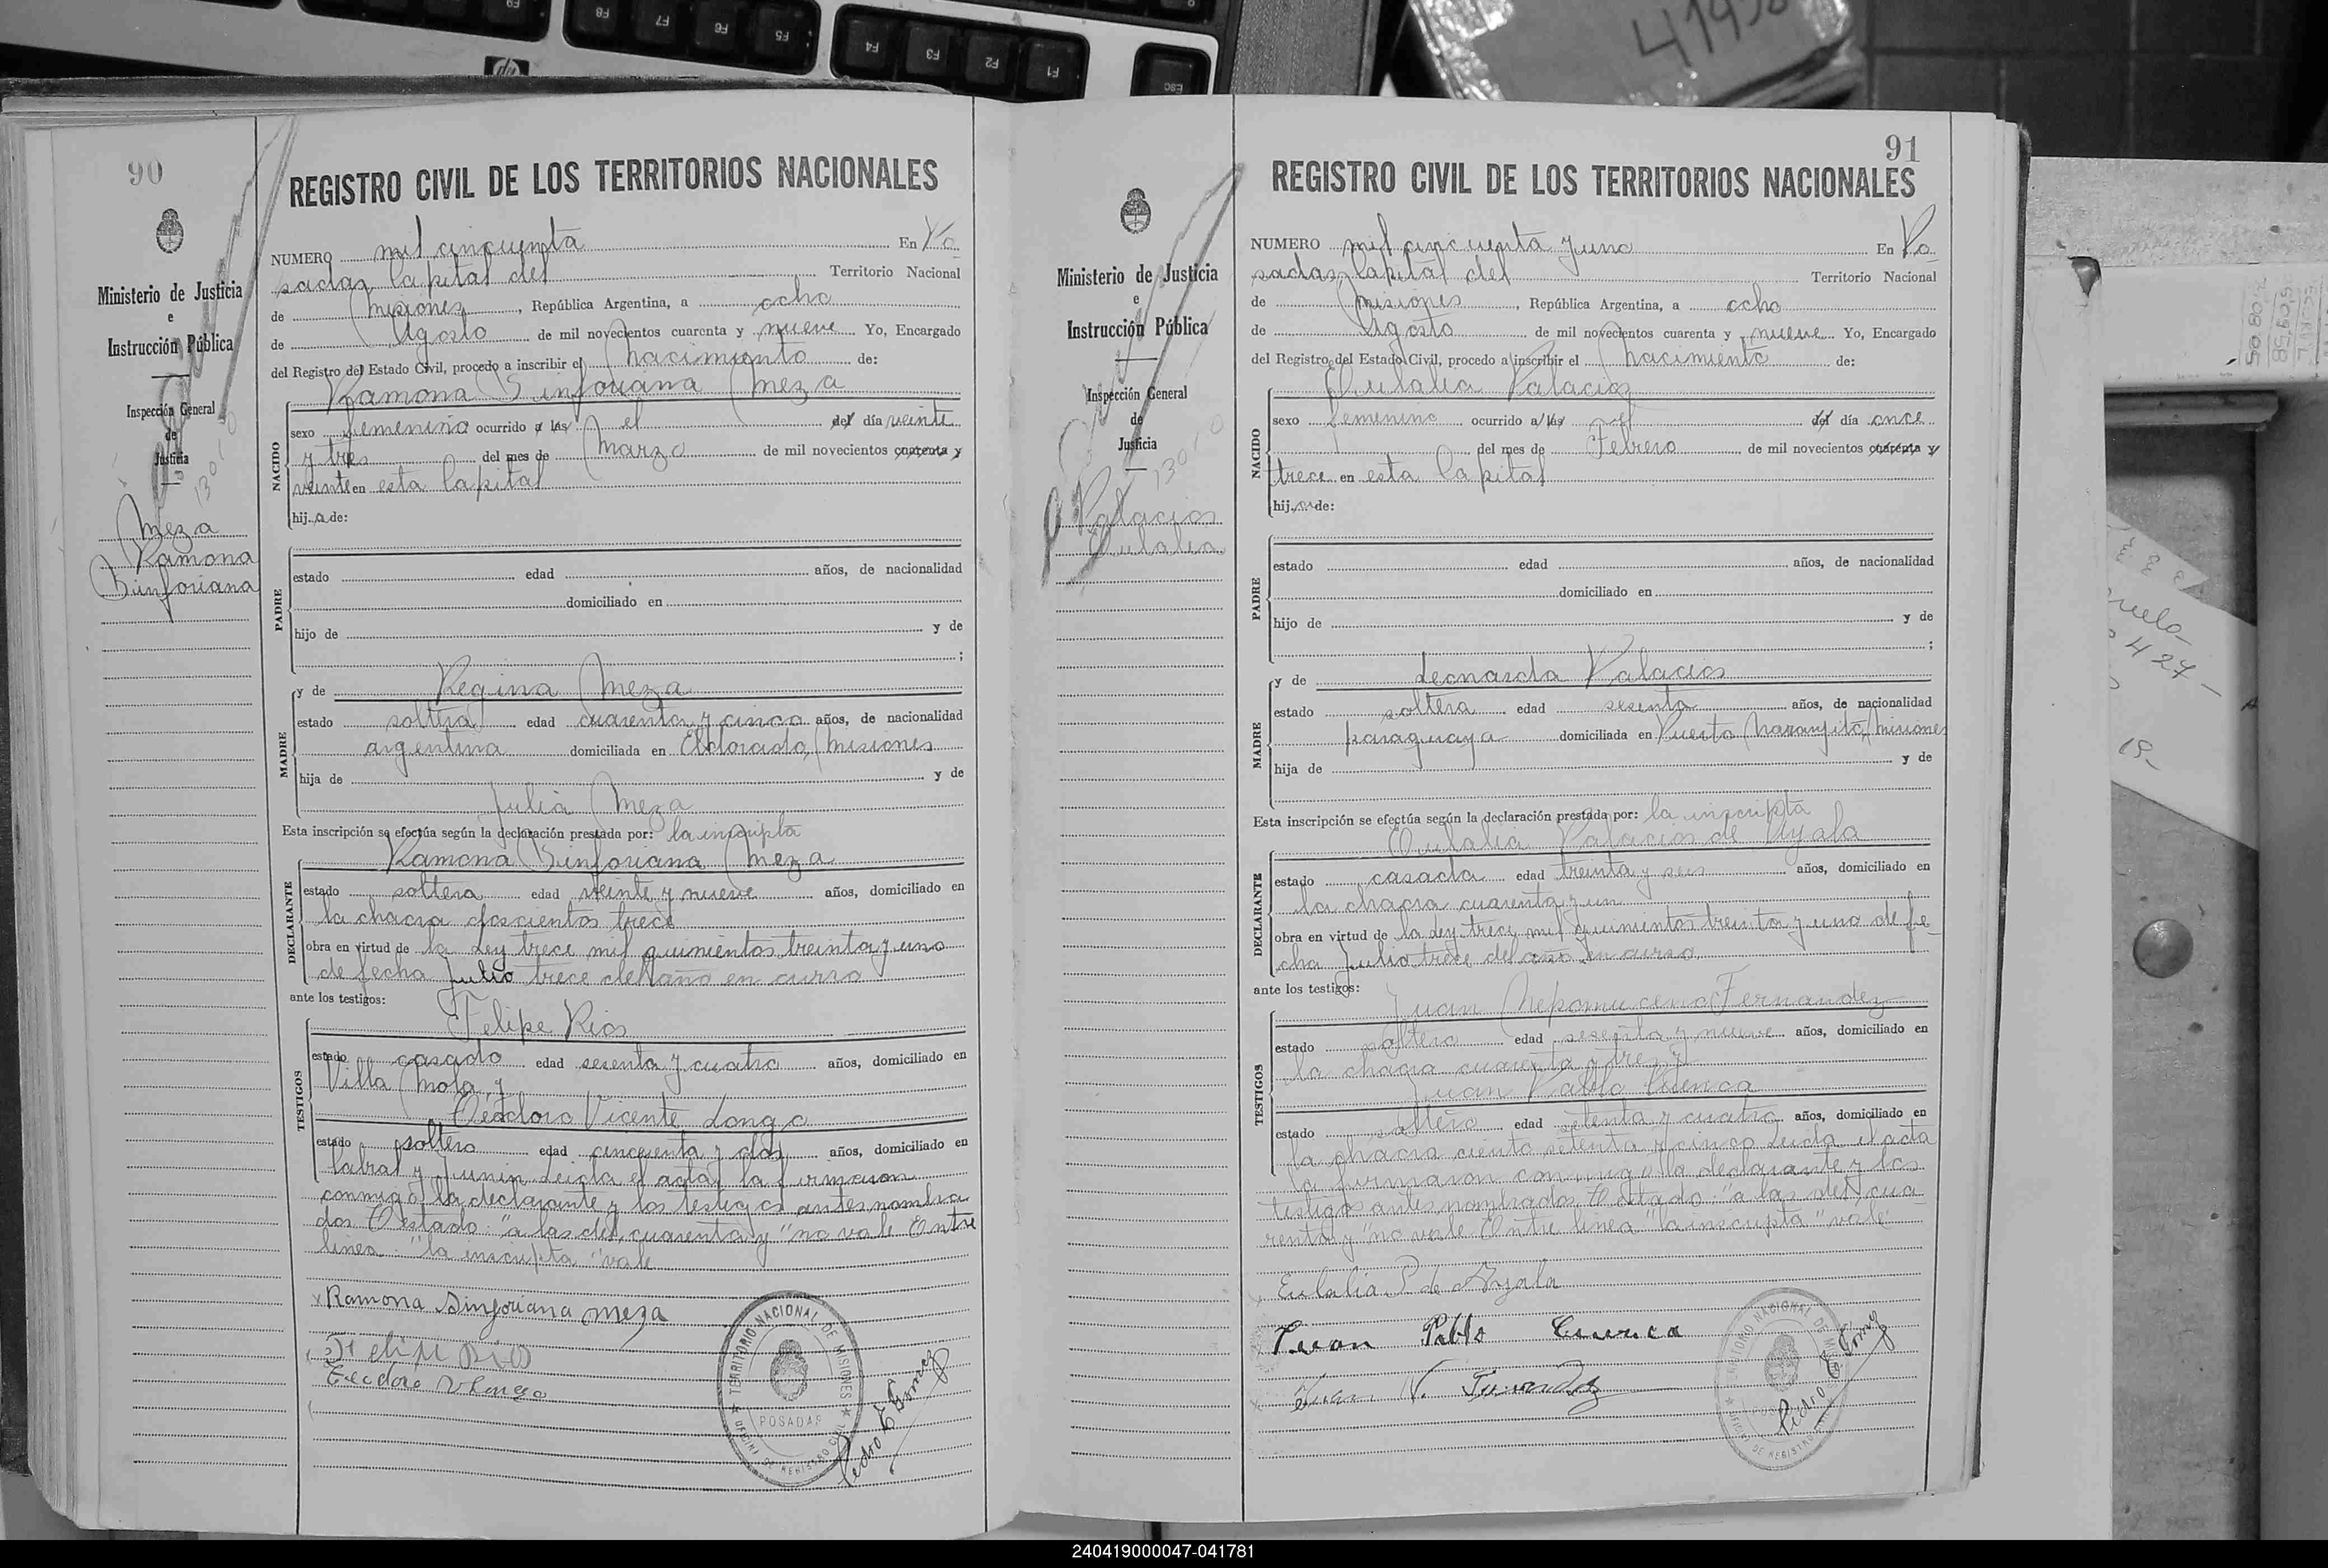 F8
F7
F6
F5
F4
F3
F2
F1
ESC
hp
90
Ministerio de Justicia
e
Instrucción Pública
Inspección General
de
Justicia
Meza
Ramona
Sinforiana
REGISTRO CIVIL DE LOS TERRITORIOS NACIONALES
NUMERO mil cincuenta En Po
sadas, Capital del Territorio Nacional
de Misiones, República Argentina, a ocho
de Agosto de mil novecientos cuarenta y nueve Yo, Encargado
del Registro del Estado Civil, procedo a inscribir el nacimiento de:
Ramona Sinforiana Meza
NACIDO
sexo femenino ocurrido a las el del día veinte
y tres del mes de Marzo de mil novecientos cuarenta y
veinte en esta Capital
hij a de:
PADRE
estado edad años, de nacionalidad
domiciliado en
hijo de y de
;
MADRE
y de Regina Meza
estado soltera edad cuarenta y cinco años, de nacionalidad
argentina domiciliada en Eldorado, Misiones
hija de y de
Julia Meza
Esta inscripción se efectúa según la declaración prestada por: la inscripta
DECLARANTE
Ramona Sinforiana Meza
estado soltera edad veinte y nueve años, domiciliado en
la chacra doscientos trece
obra en virtud de la ley trece mil quinientos treinta y uno
de fecha Julio trece del año en curso
ante los testigos:
TESTIGOS
Felipe Rios
estado casado edad sesenta y cuatro años, domiciliado en
Villa Mola, y
Teodoro Vicente Longo
estado soltero edad cincuenta y dos años, domiciliado en
Cabral y Junin Leida el acta, la firmaron
conmigo la declarante y los testigos antes nombra
dos Testado: "a las del, cuarenta y" no vale Entre
linea: "la inscripta" vale
Ramona Sinforiana Meza
Felipe Rios
Teodoro V Longo
TERRITORIO NACIONAL DE MISIONES
POSADAS
OFICINA DE REGISTRO CIVIL
91
Ministerio de Justicia
e
Instrucción Pública
Inspección General
de
Justicia
Palacios
Eulalia
REGISTRO CIVIL DE LOS TERRITORIOS NACIONALES
NUMERO mil cincuenta y uno En Po
sadas, Capital del Territorio Nacional
de Misiones, República Argentina, a ocho
de Agosto de mil novecientos cuarenta y nueve Yo, Encargado
del Registro del Estado Civil, procedo a inscribir el nacimiento de:
Eulalia Palacios
NACIDO
sexo femenino ocurrido a las el del día once
del mes de Febrero de mil novecientos cuarenta y
trece en esta Capital
hij a de:
PADRE
estado edad años, de nacionalidad
domiciliado en
hijo de y de
;
MADRE
y de Leonarda Palacios
estado soltera edad sesenta años, de nacionalidad
paraguaya domiciliada en Puerto Naranjito, Misiones
hija de y de
Esta inscripción se efectúa según la declaración prestada por: la inscripta
DECLARANTE
Eulalia Palacios de Ayala
estado casada edad treinta y seis años, domiciliado en
la chacra cuarenta y un
obra en virtud de la ley trece mil quinientos treinta y uno de fe-
cha Julio trece del año en curso
ante los testigos:
TESTIGOS
Juan Nepomuceno Fernandez
estado soltero edad sesenta y nueve años, domiciliado en
la chacra cuarenta y tres y
Juan Pablo Cuenca
estado soltero edad setenta y cuatro años, domiciliado en
la chacra ciento setenta y cinco Leida el acta
la firmaron conmigo la declarante y los
testigos antes nombrados. Testado: "a las del, cua
renta y" no vale Entre linea "la inscripta" vale
Eulalia P de Ayala
Juan Pablo Cuenca
Juan N. Fernandez
240419000047-041781